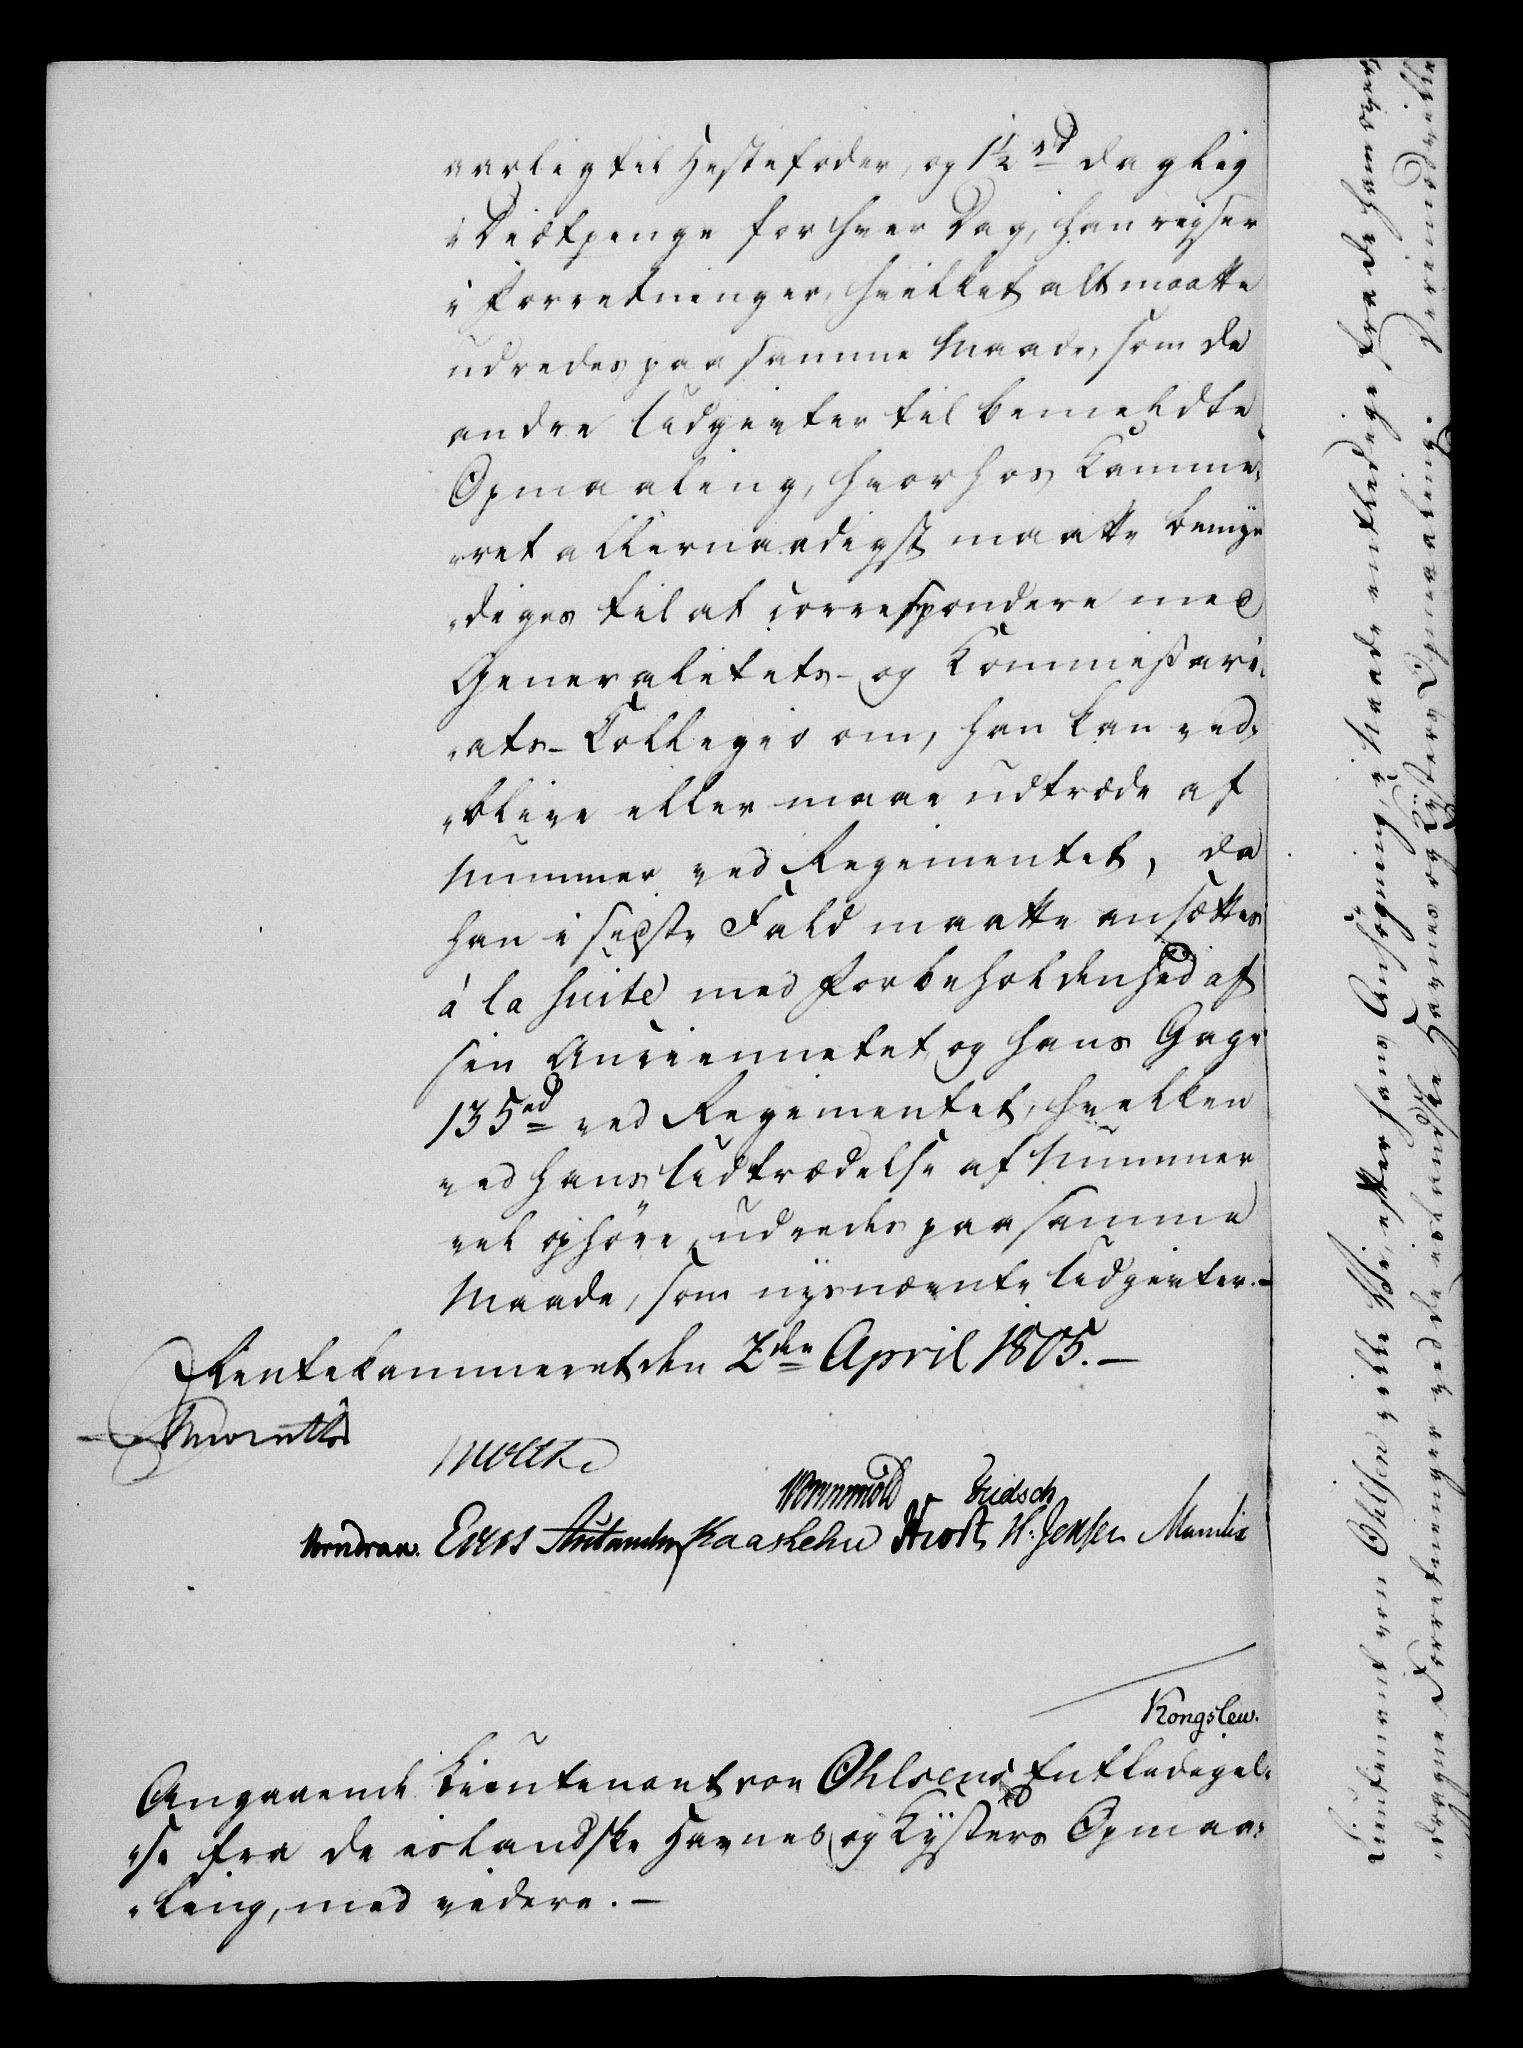 aarlig til Hestefoder, og 1½ rd daglig
i Diætpenge for hver Dag, han reyser
i Forretninger, hvilket alt maatte
udredes paa samme Maade, som de
andre Udgivter til bemeldte
Opmaaling, hvorhos Kamme-
-ret allernaadigst maatte bemyn
-diges til at correspondere med
Generalitets- og Kommissari-
-ats-Collegio om, han kan ved-
-blive eller maae udtræde af
Nummer ved Regimentet, da
han i sidste Fald maatte ansættes
à la suite med Forbeholdenhed af
sin Anciennetet og hans Gage
135 rd ved Regimentet, hvilken
ved hans Udtrædelse af Nummer
vel ophöre, udredes paa samme
Maade, som nysnævnte Udgivter.-
Rentekammeret den 2den April 1805.-
Moltke
Wormskiold Fridsch
Eyers Kaashehu Wrost H. Jensen
Kongslew.
Angaaende Lieutenant von Ohlsens Entledigel-
-se fra de islandske Havnes og Kysters Opmaa-
-ling, med videre.-
Lieutenant von Ohlsen ville Vi, efter hans Ansögning, i Naade entledige fra de ham over-
-dragne Forretninger ved de islandske Havnes og Kysters Opmaaling. Derimod ville